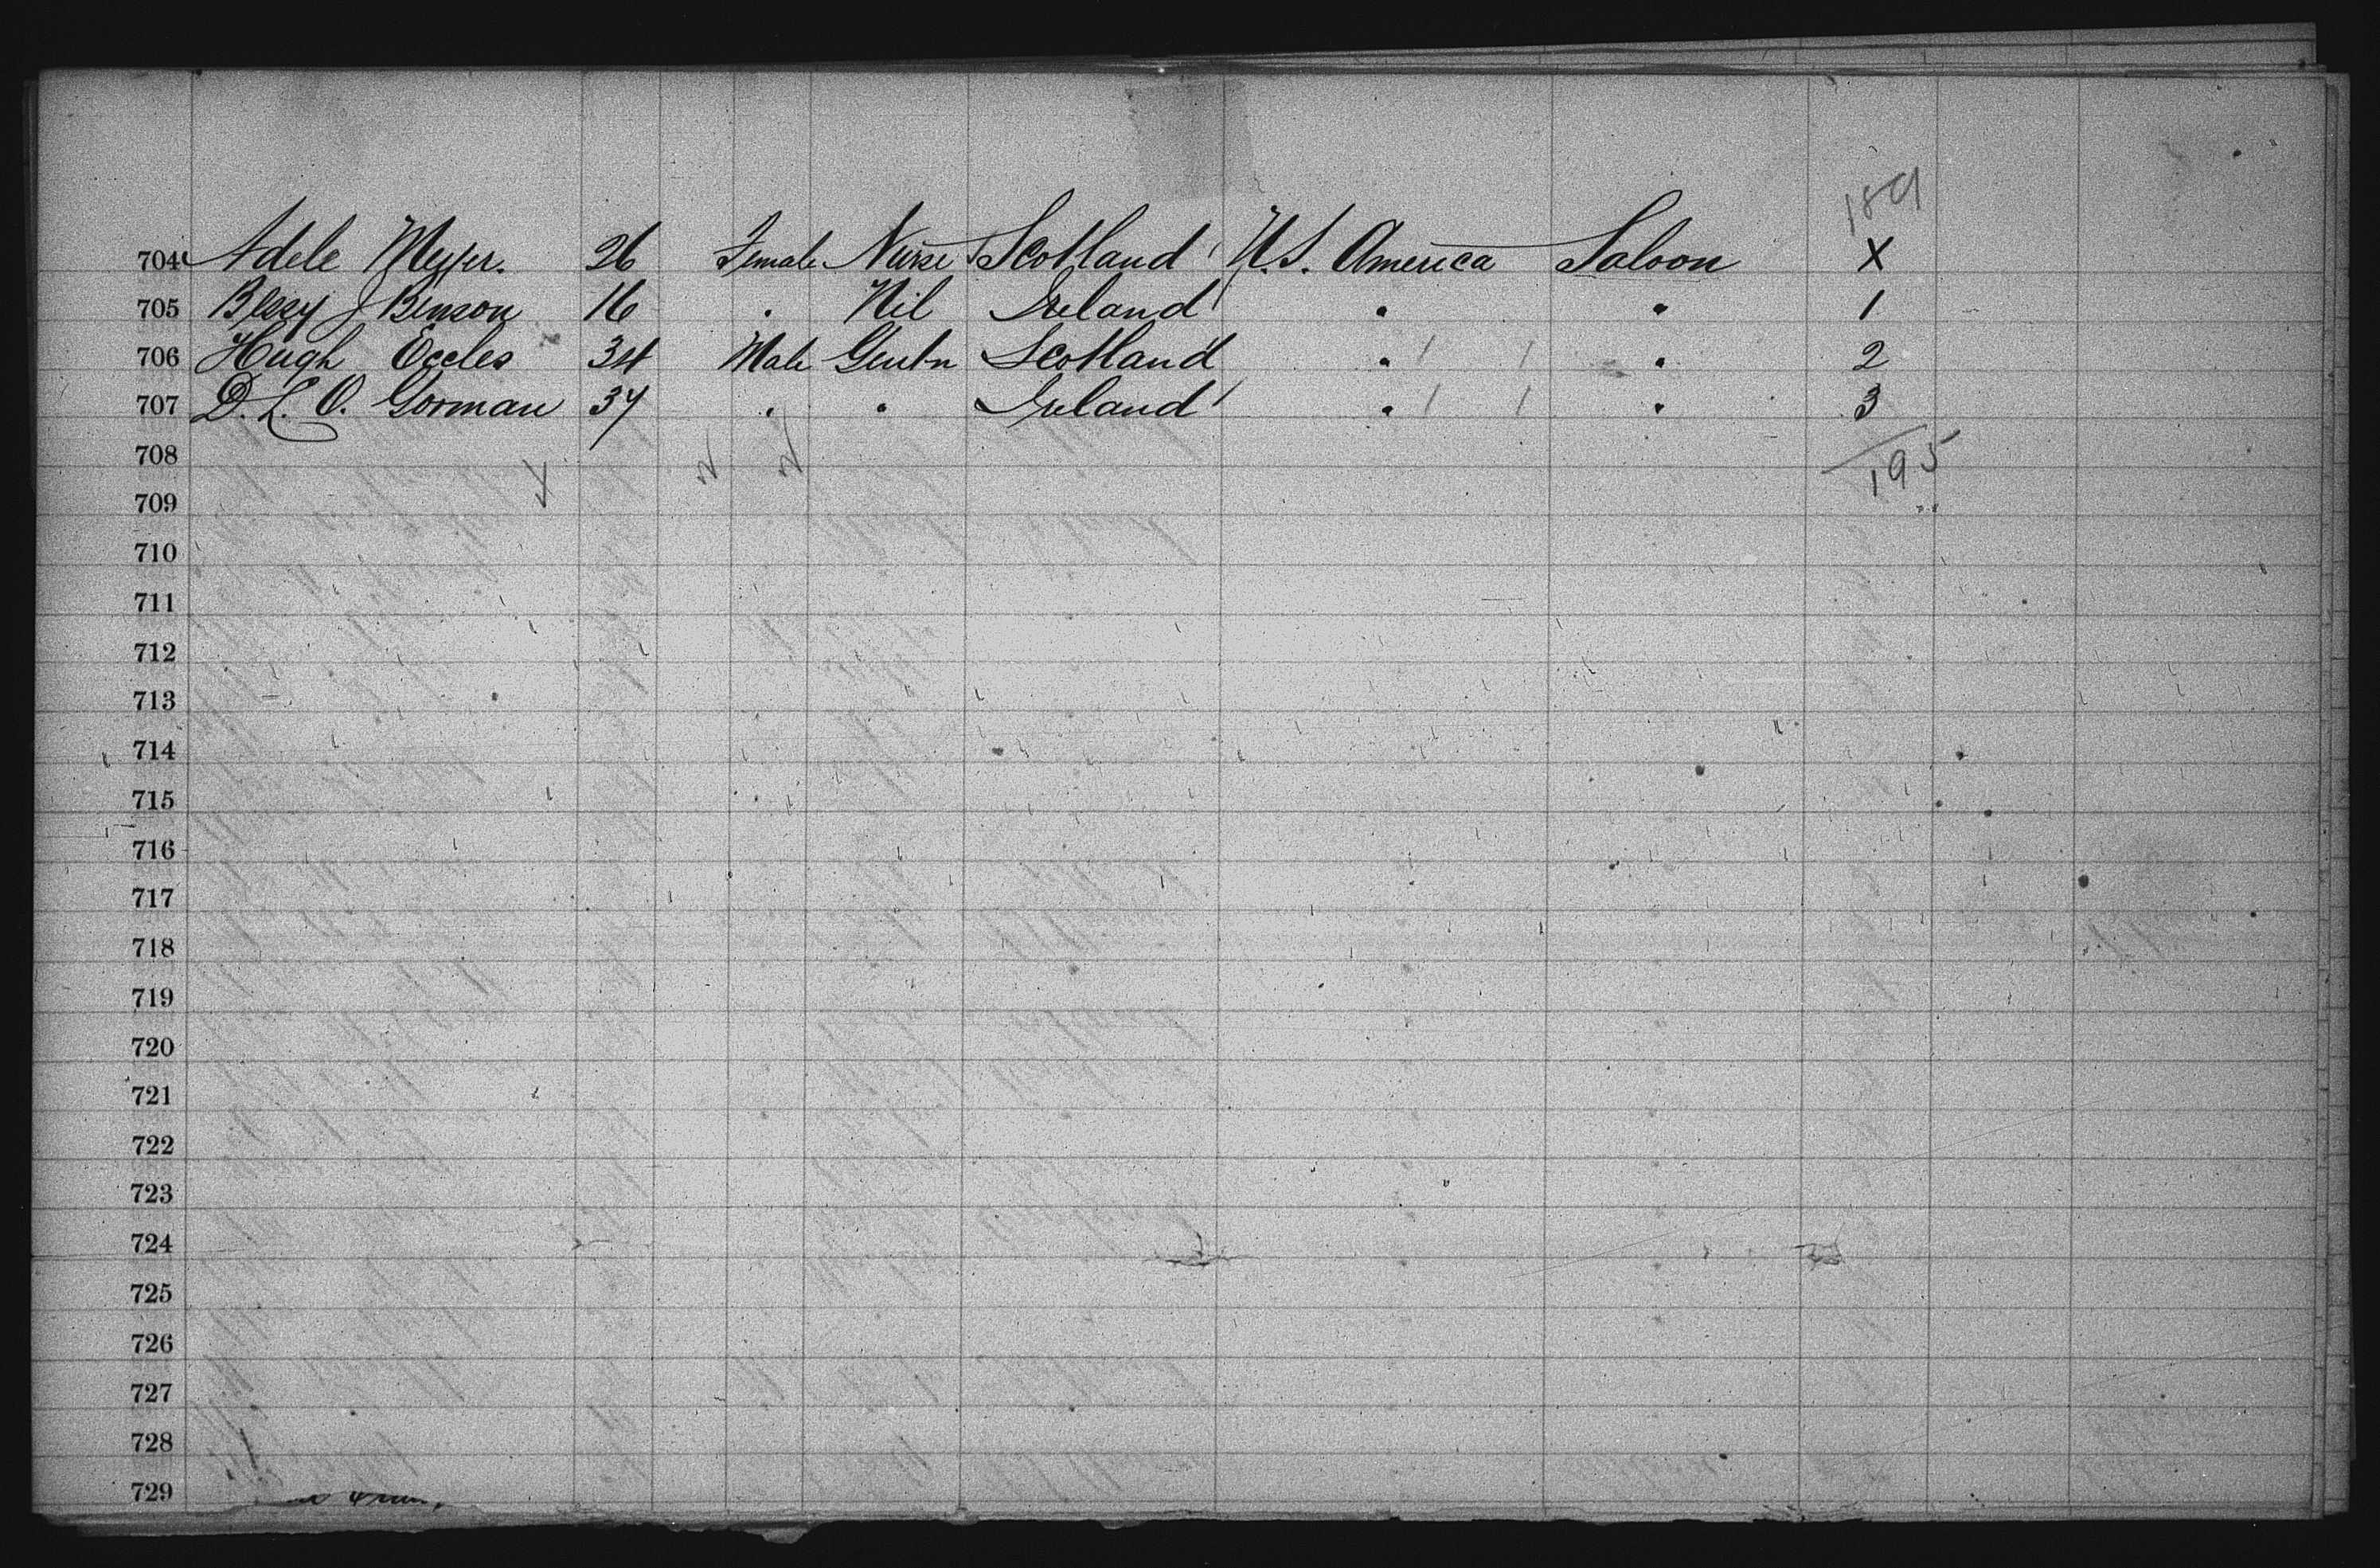 189
704 Adele Meyer. 26 Female Nurse Scotland U.S. America Saloon X
705 Bessy J Benson 16 " Nil Ireland " " 1
706 Hugh Eccles 34 Male Gentn Scotland " " 2
707 D. L. O. Gorman 37 " " Ireland " " 3
708 195
709
710
711
712
713
714
715
716
717
718
719
720
721
722
723
724
725
726
727
728
729